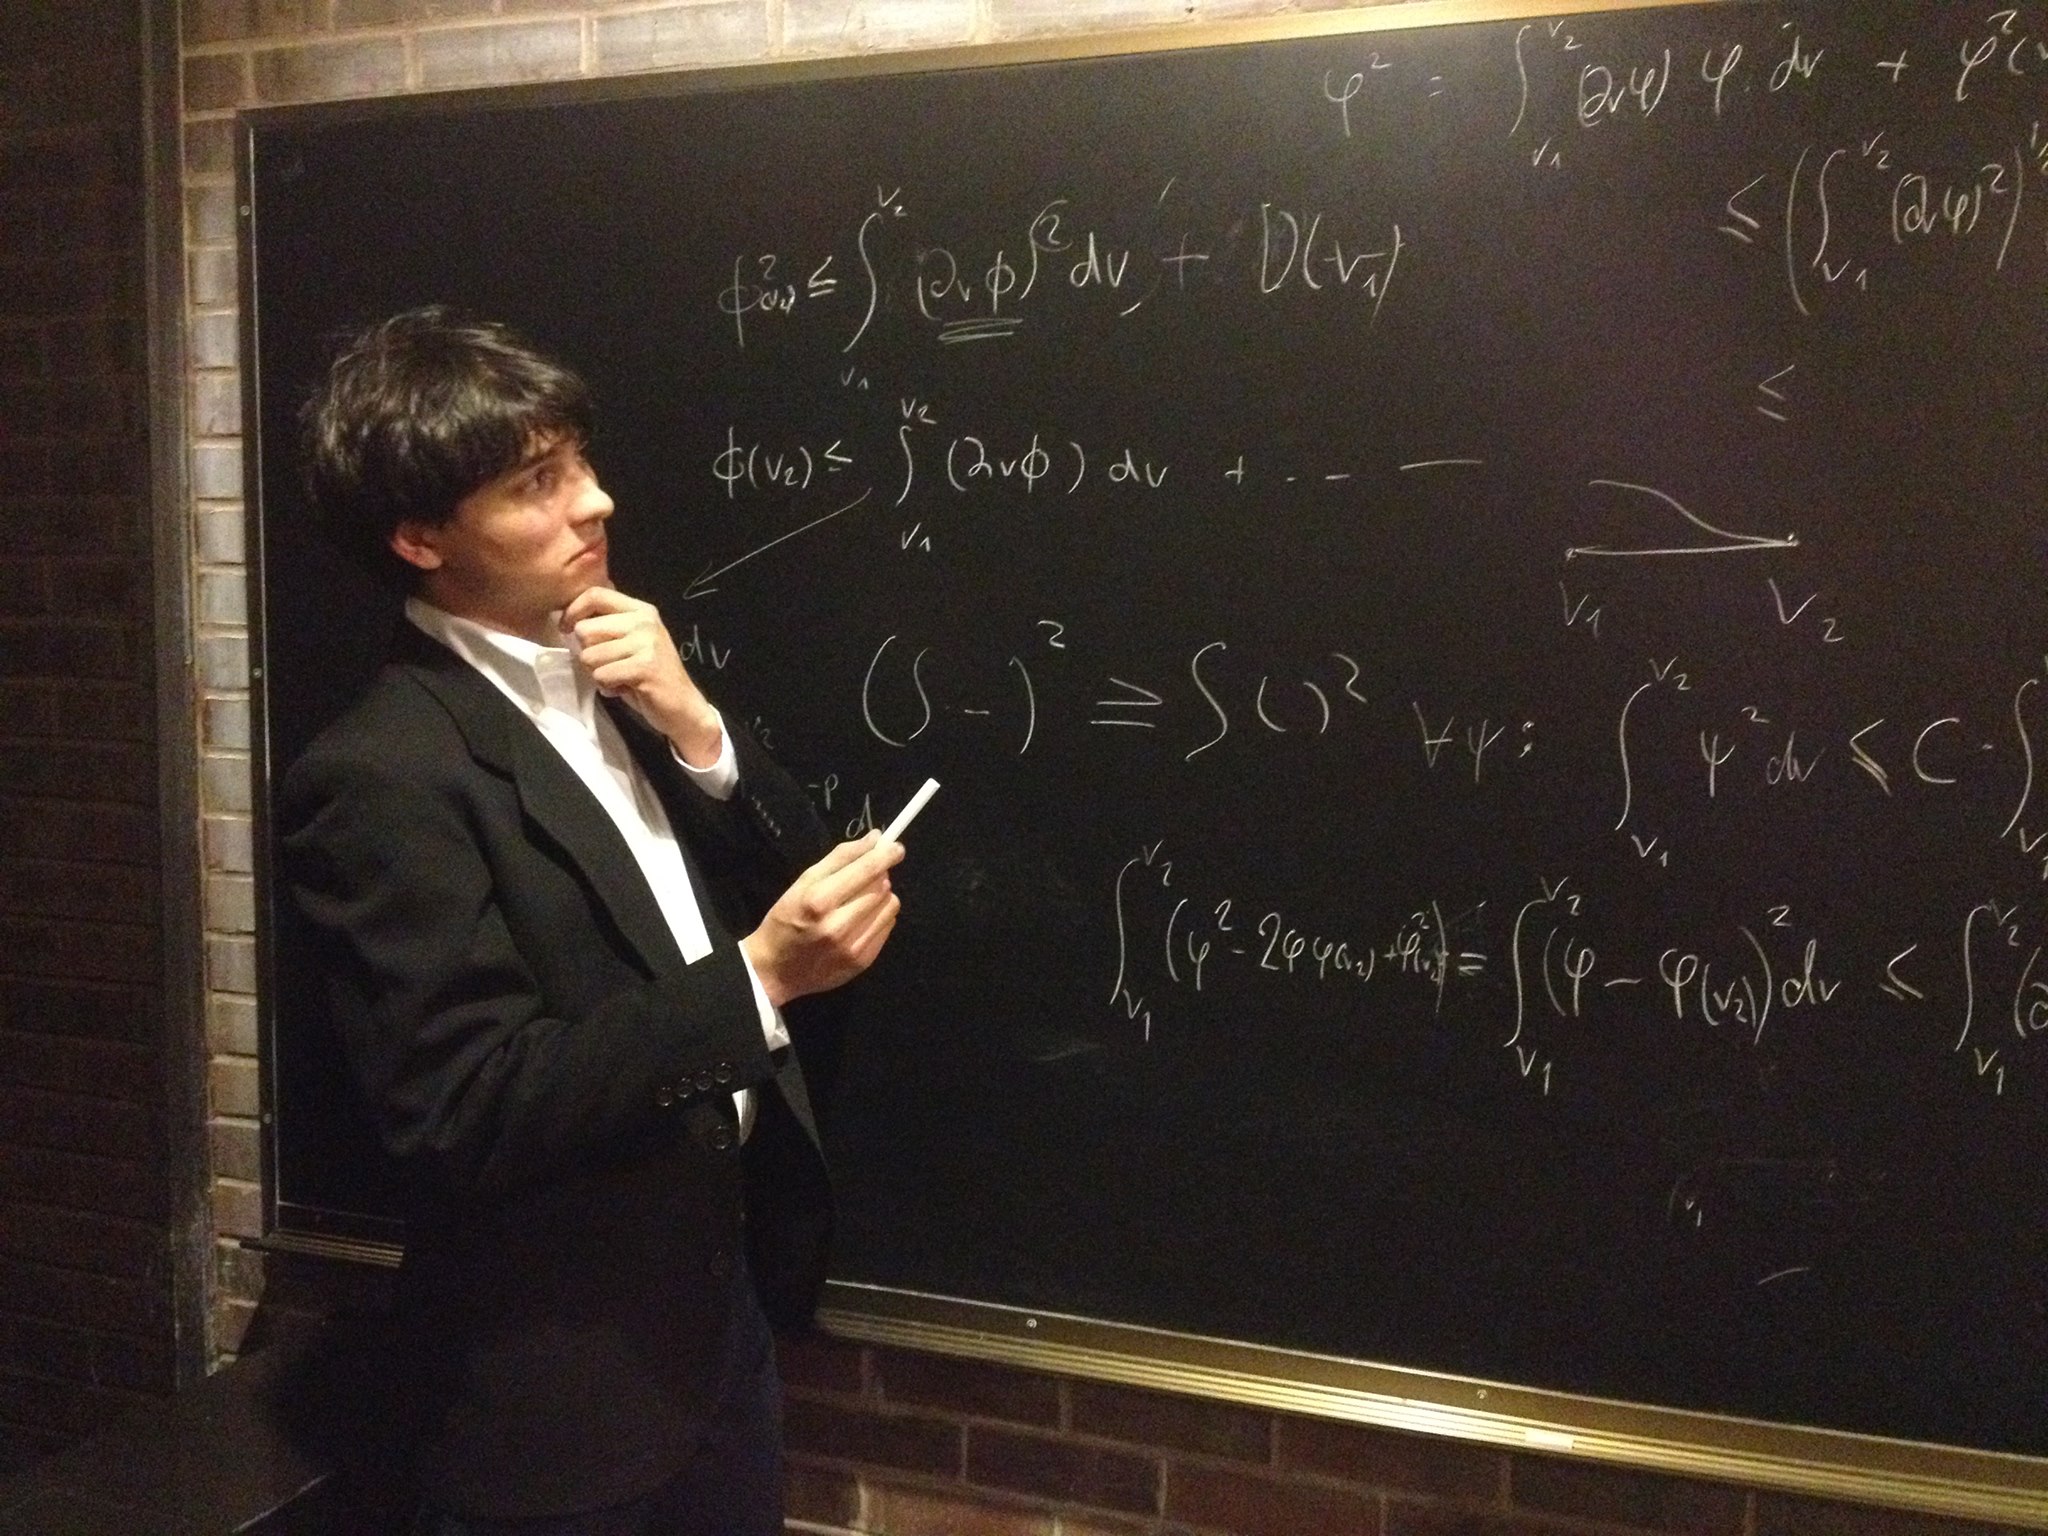 φ² = ∫_{v₁}^{v₂} (∂vφ) φ · dv + φ²(v
≤ (∫_{v₁}^{v₂} (∂vφ)²)
ϕ²(v₂) ≤ ∫_{v₁}^{v₂} (∂vϕ)² dv + D(v₁)
≤
ϕ(v₂) ≤ ∫_{v₁}^{v₂} (∂vϕ) dv + . . –
v₁ v₂
dv
(∫ . . –)² ≥ ∫ ( )²
∀ψ : ∫_{v₁}^{v₂} ψ² dv ≤ C · ∫_{v₁}
v₂
-p d
∫_{v₁}^{v₂} (φ² - 2φφ(v₂) + φ²(v₂)) = ∫_{v₁}^{v₂} (φ - φ(v₂))² dv ≤ ∫_{v₁}^{v₂} (∂
v₁